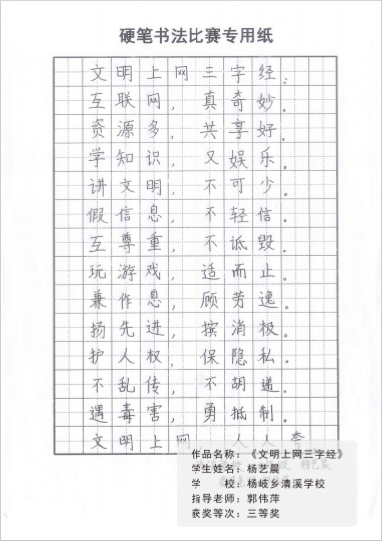 硬笔书法比赛专用纸
文明上网三字经：
互联网，真奇妙。
资源多，共享好。
学知识，又娱乐。
讲文明，不可少。
假信息，不轻信。
互尊重，不诋毁。
玩游戏，适而止。
兼作息，顾劳逸。
扬先进，摈消极。
护人权，保隐私。
不乱传，不胡递。
遇毒害，勇抵制。
文明上网 人人夸
作品名称：《文明上网三字经》
学生姓名：杨艺晨
学 校：杨岐乡清溪学校
指导老师：郭伟萍
获奖等次：三等奖